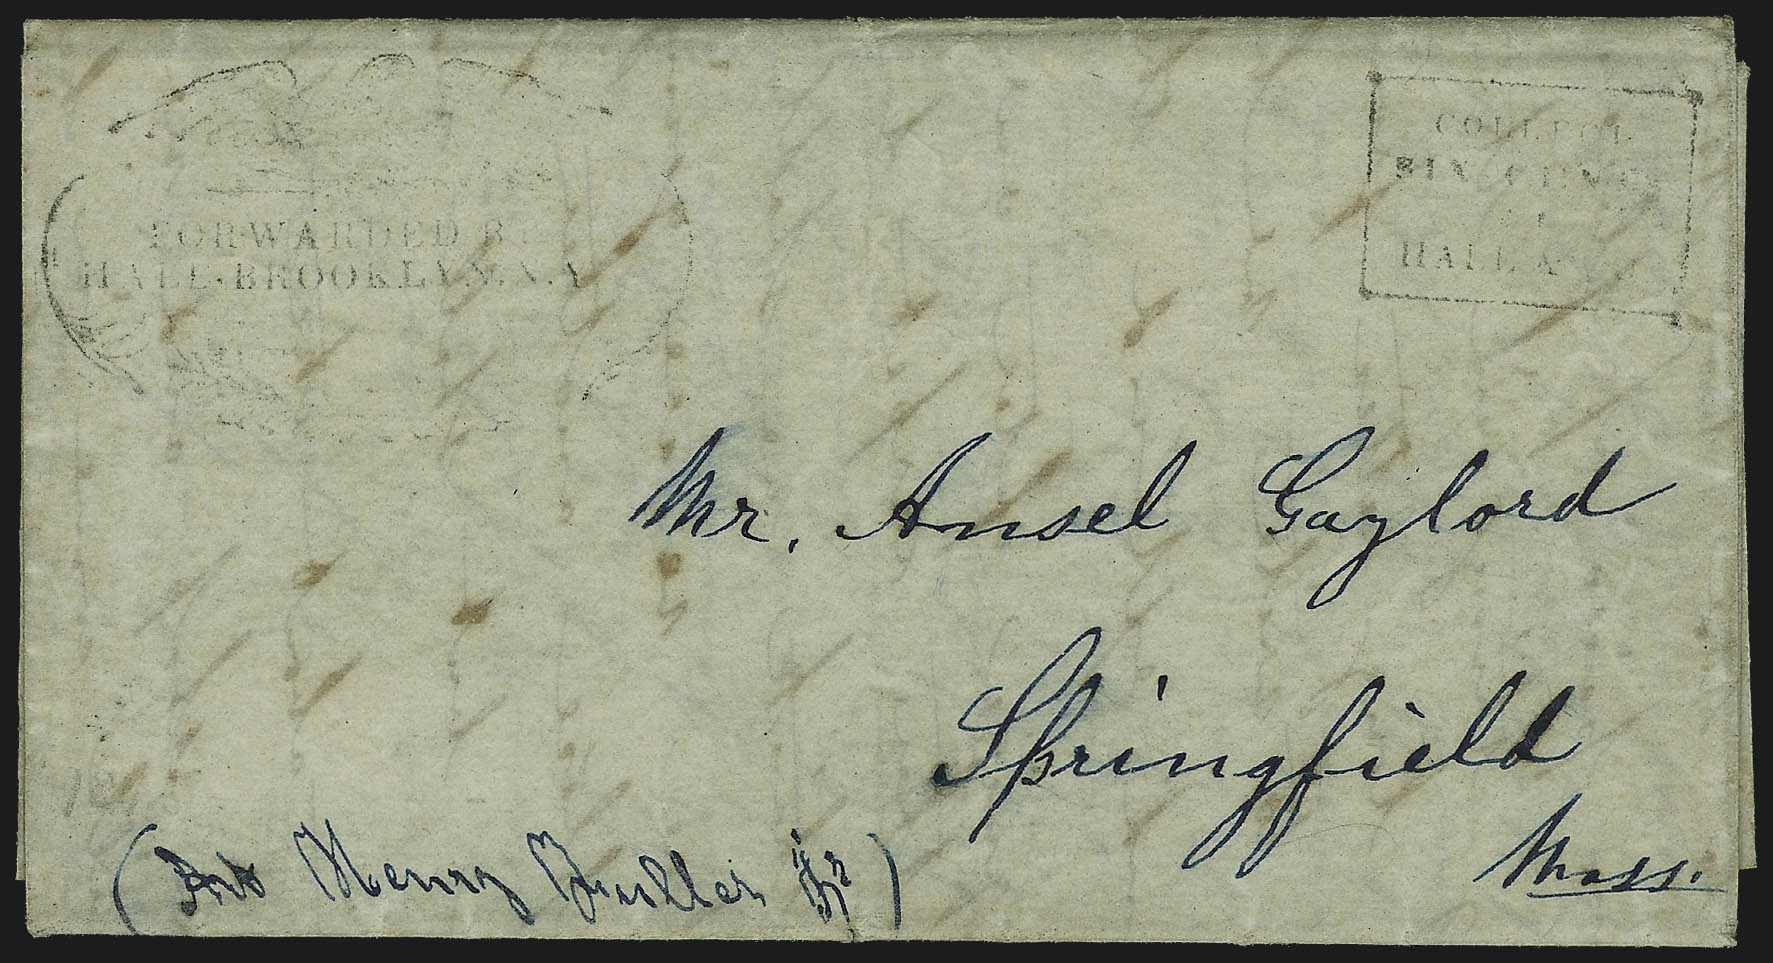 FORWARDED BY
HALL. BROOKLYN. N.Y
COLLECT
SIX CENTS
HALL &
Mr. Ansel Gaylord
Springfield
Mass.
Henry Fuller Jr